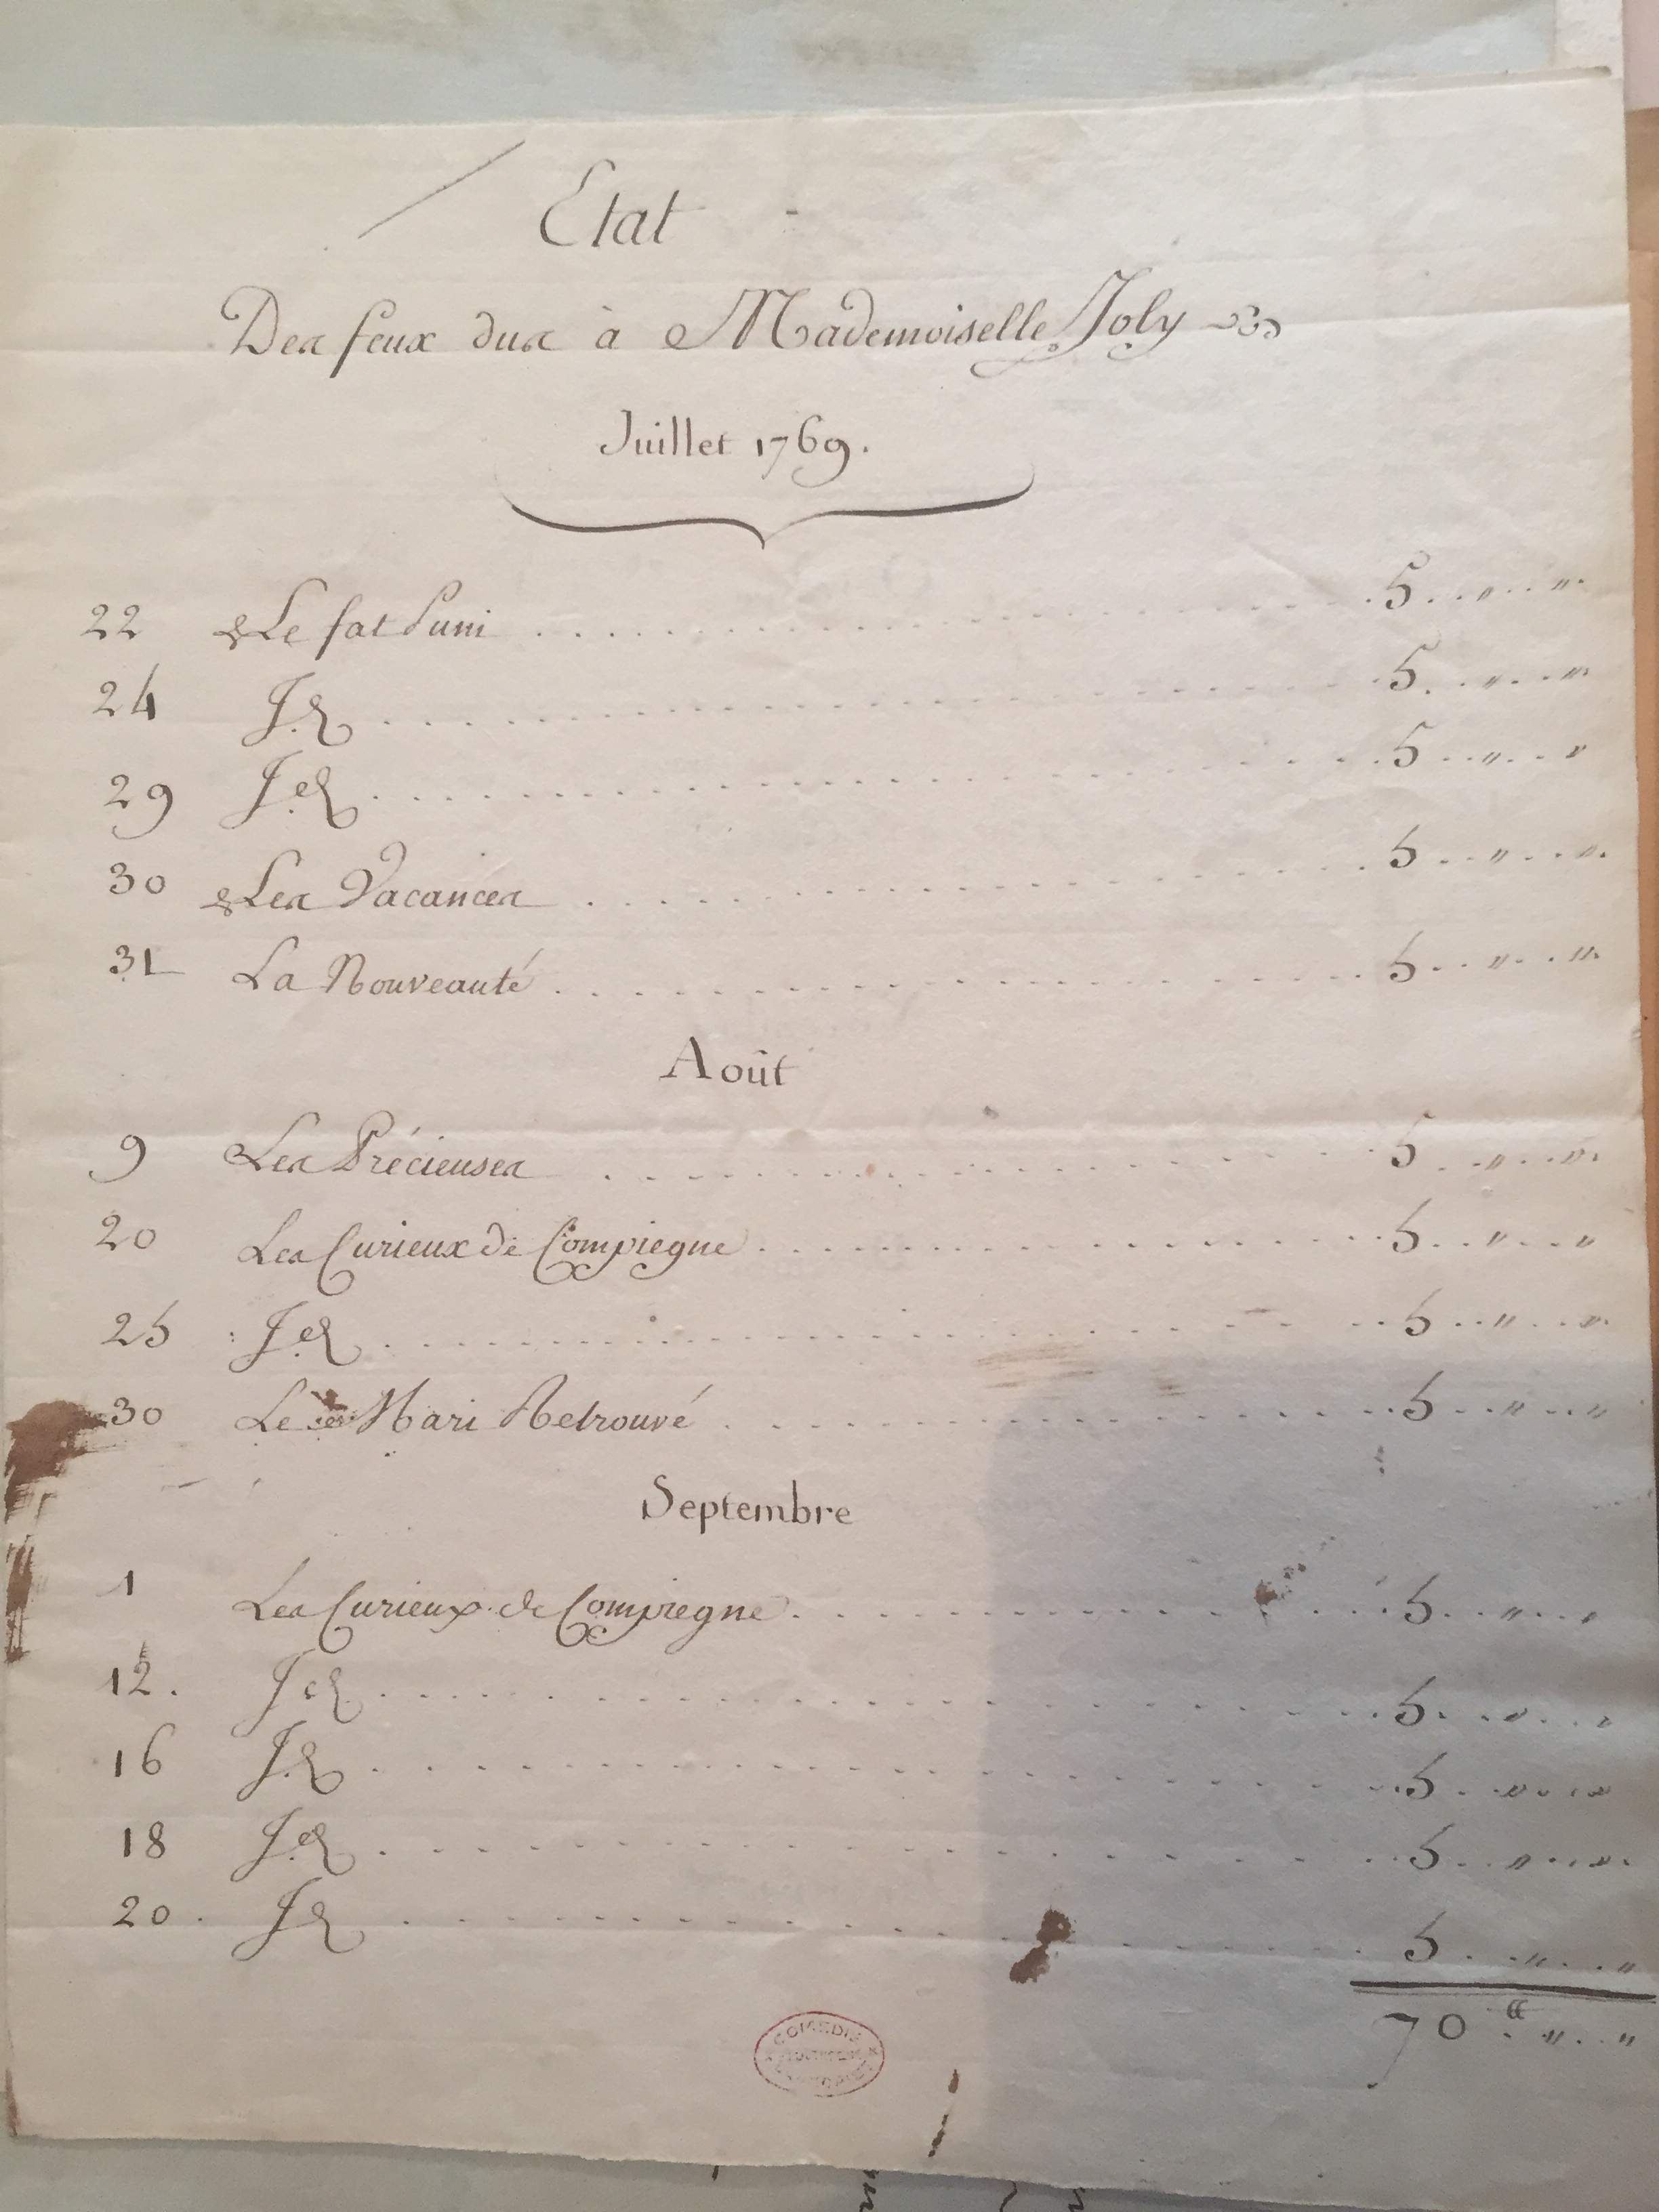 Etat
Des feux dus à Mademoiselle Joly
Juillet 1769.
22 Le fat Puni . . . . . 5 . . " . . "
24 Id . . . . . 5 . . " . . "
29 Id . . . . . 5 . . " . . "
30 Les Vacances . . . . . 5 . . " . . "
31 La Nouveauté . . . . . 5 . . " . . "
Août
9 Les Précieuses . . . . . 5 . . " . . "
20 Les Curieux de Compiegne . . . . . 5 . . " . . "
25 Id . . . . . 5 . . " . . "
30 Le Mari Retrouvé . . . . . 5 . . " . . "
Septembre
1 Les Curieux de Compiegne . . . . . 5 . . " . . "
12. Id . . . . . 5 . . " . . "
16 Id . . . . . 5 . . " . . "
18 Id . . . . . 5 . . " . . "
20. Id . . . . . 5 . . " . . "
70 ₶ . " . . "
COMEDIE